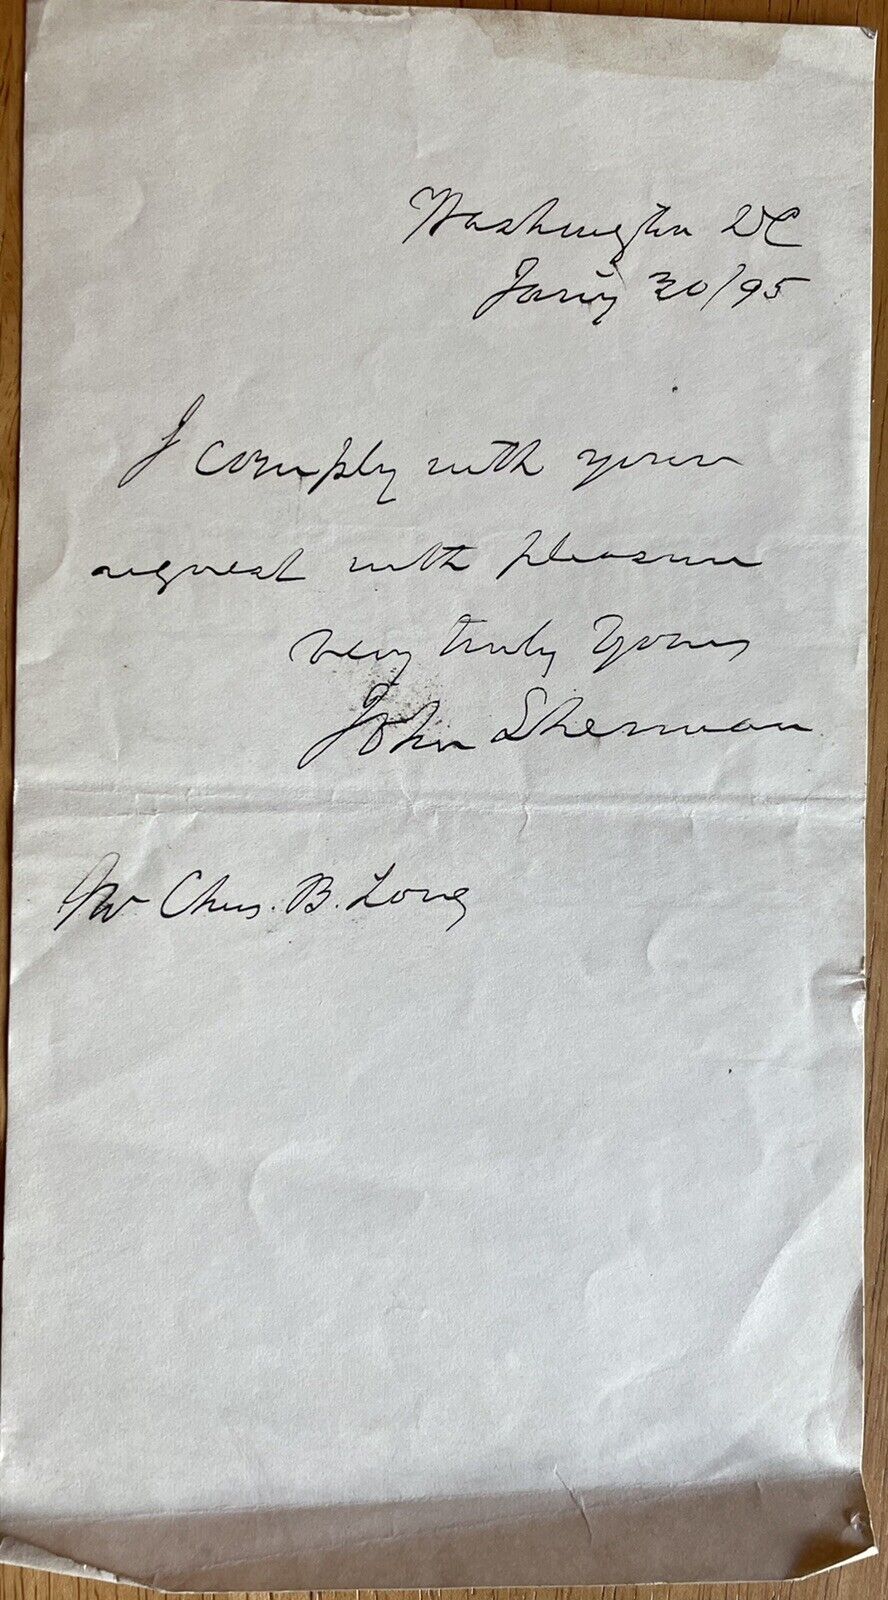 Washington DC
Jany 30/95
I comply with your
request with pleasure
Very truly Yours
John Sherman
Mr Chas. B. Long